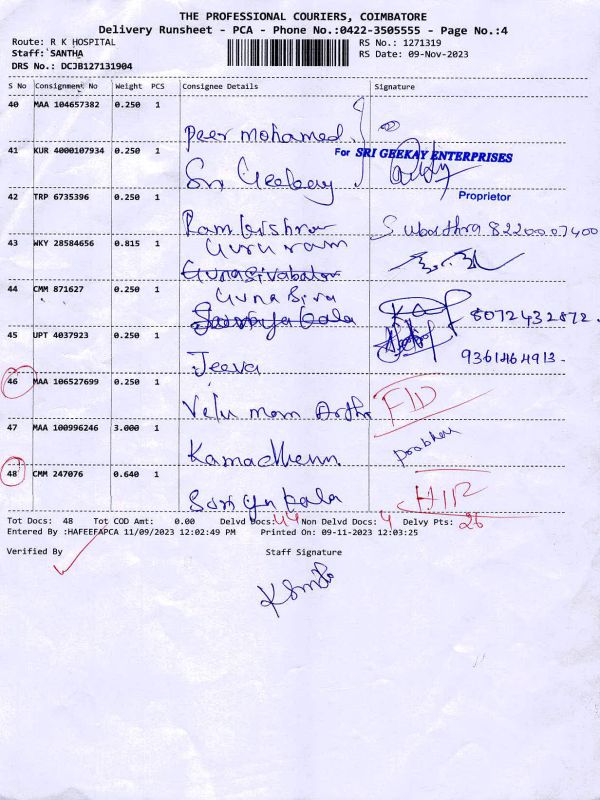 THE PROFESSIONAL COURIERS, COIMBATORE
Delivery Runsheet - PCA - Phone No.:0422-3505555 - Page No.:4
Route: R K HOSPITAL
RS No.: 1271319
Staff: SANTHA
RS Date: 09-Nov-2023
DRS No.: DCJB127131904
S No Consignment No Weight PCS Consignee Details Signature
40 MAA 104657382 0.250 1
Peer mohamed.
41 KUR 4000107934 0.250 1
For SRI GEEKAY ENTERPRISES
Sri Geekay
Proprietor
42 TRP 6735396 0.250 1
Ramkrishna Subathra 8220007400
43 WKY 28584656 0.815 1
Gururam
Gunasivabalan
44 CMM 871627 0.250 1
Guna Siva
8072432872.
45 UPT 4037923 0.250 1
9361464913-
Jeeva
46 MAA 106527699 0.250 1
Velu mom Artha FID
47 MAA 100996246 3.000 1
Kamadhenu Prabhu
48 CMM 247076 0.640 1
HIR
Tot Docs: 48 Tot COD Amt: 0.00 Delvd Docs: 44 Non Delvd Docs: 4 Delvy Pts: 26
Entered By :HAFEEFAPCA 11/09/2023 12:02:49 PM Printed On: 09-11-2023 12:03:25
Verified By Staff Signature